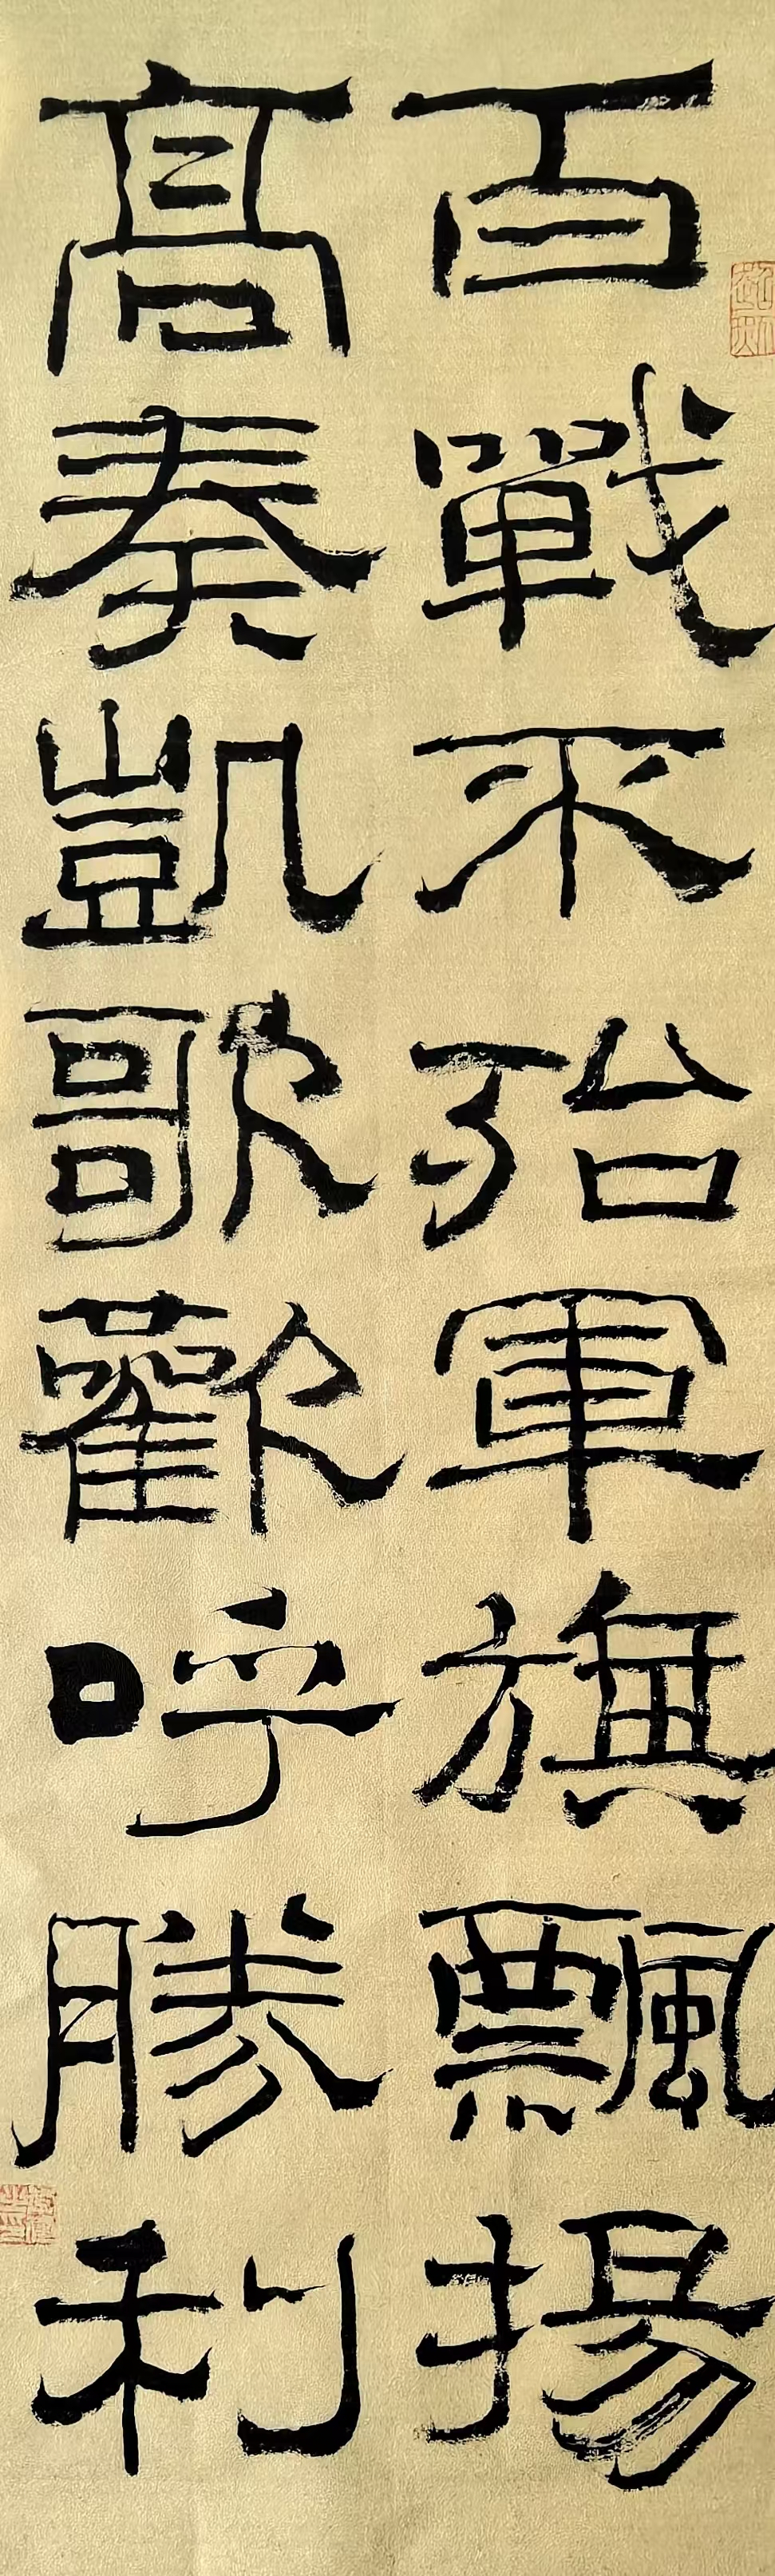 百戰不殆軍旗飄揚
高奏凱歌歡呼勝利